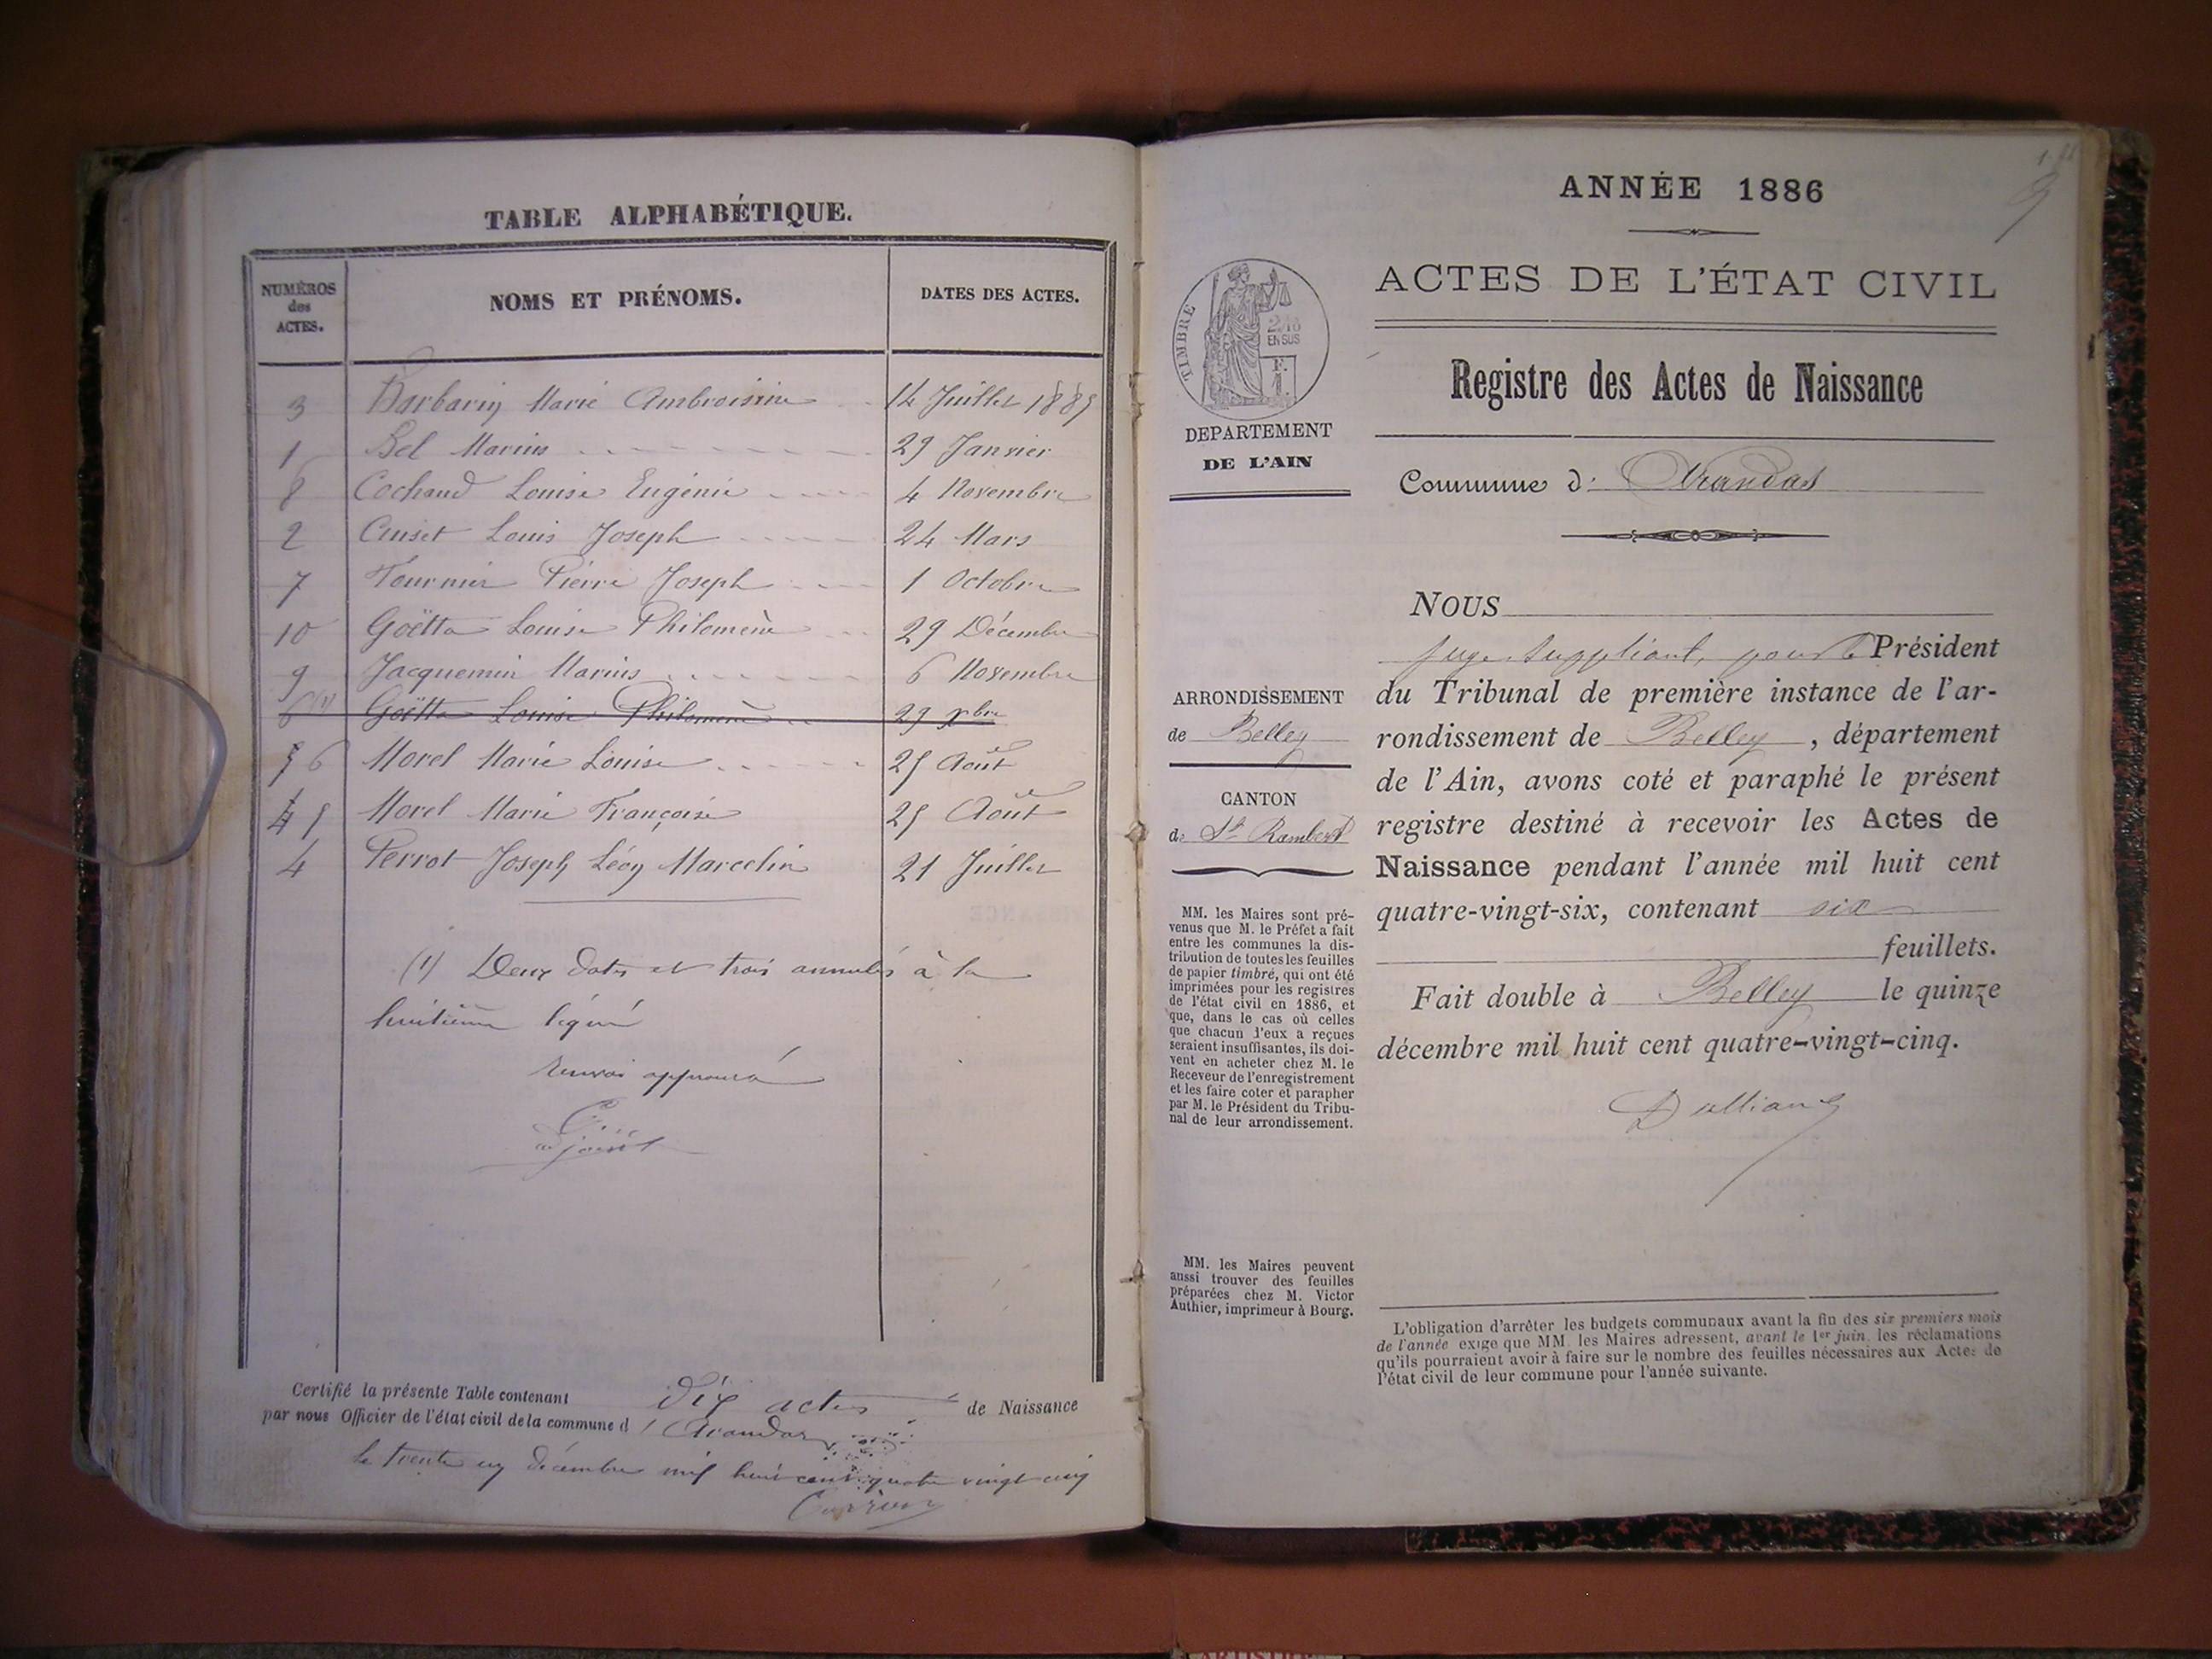 TABLE ALPHABÉTIQUE.
NUMÉROS
des
ACTES.
NOMS ET PRÉNOMS.
DATES DES ACTES.
3 Barbarin Marie Ambroisine 14 Juillet 1885
1 Bel Marius 29 Janvier
8 Cochand Louise Eugénie 4 Novembre
2 Cuset Louis Joseph 24 Mars
7 Fournier Pierre Joseph 1 Octobre
10 Goëtta Louise Philomène 29 Décembre
9 Jacquemin Marius 6 Novembre
6 (1) Goëtta Louise Philomène 29 Xbre
6 Morel Marie Louise 25 Août
5 Morel Marie Françoise 25 Août
4 Perrot Joseph Léon Marcelin 21 Juillet
(1) Deux dates et trois annulés à la
huitième ligne
renvoi approuvé
adjoint
Certifié la présente Table contenant dix actes de Naissance
par nous Officier de l'état civil de la commune d'Arandas
le trente un décembre mil huit cent quatre vingt cinq
ANNÉE 1886
ACTES DE L'ÉTAT CIVIL
Registre des Actes de Naissance
Commune d' Arandas
TIMBRE
2/10
EN SUS
DEPARTEMENT
DE L'AIN
ARRONDISSEMENT
de Belley
CANTON
de St Rambert
MM. les Maires sont pré-
venus que M. le Préfet a fait
entre les communes la dis-
tribution de toutes les feuilles
de papier timbré, qui ont été
imprimées pour les registres
de l'état civil en 1886, et
que, dans le cas où celles
que chacun d'eux a reçues
seraient insuffisantes, ils doi-
vent en acheter chez M. le
Receveur de l'enregistrement
et les faire coter et parapher
par M. le Président du Tribu-
nal de leur arrondissement.
MM. les Maires peuvent
aussi trouver des feuilles
préparées chez M. Victor
Authier, imprimeur à Bourg.
NOUS
juge suppléant, pour le Président
du Tribunal de première instance de l'ar-
rondissement de Belley, département
de l'Ain, avons coté et paraphé le présent
registre destiné à recevoir les Actes de
Naissance pendant l'année mil huit cent
quatre-vingt-six, contenant six
feuillets.
Fait double à Belley le quinze
décembre mil huit cent quatre-vingt-cinq.
L'obligation d'arrêter les budgets communaux avant la fin des six premiers mois
de l'année exige que MM. les Maires adressent, avant le 1er juin, les réclamations
qu'ils pourraient avoir à faire sur le nombre des feuilles nécessaires aux Actes de
l'état civil de leur commune pour l'année suivante.